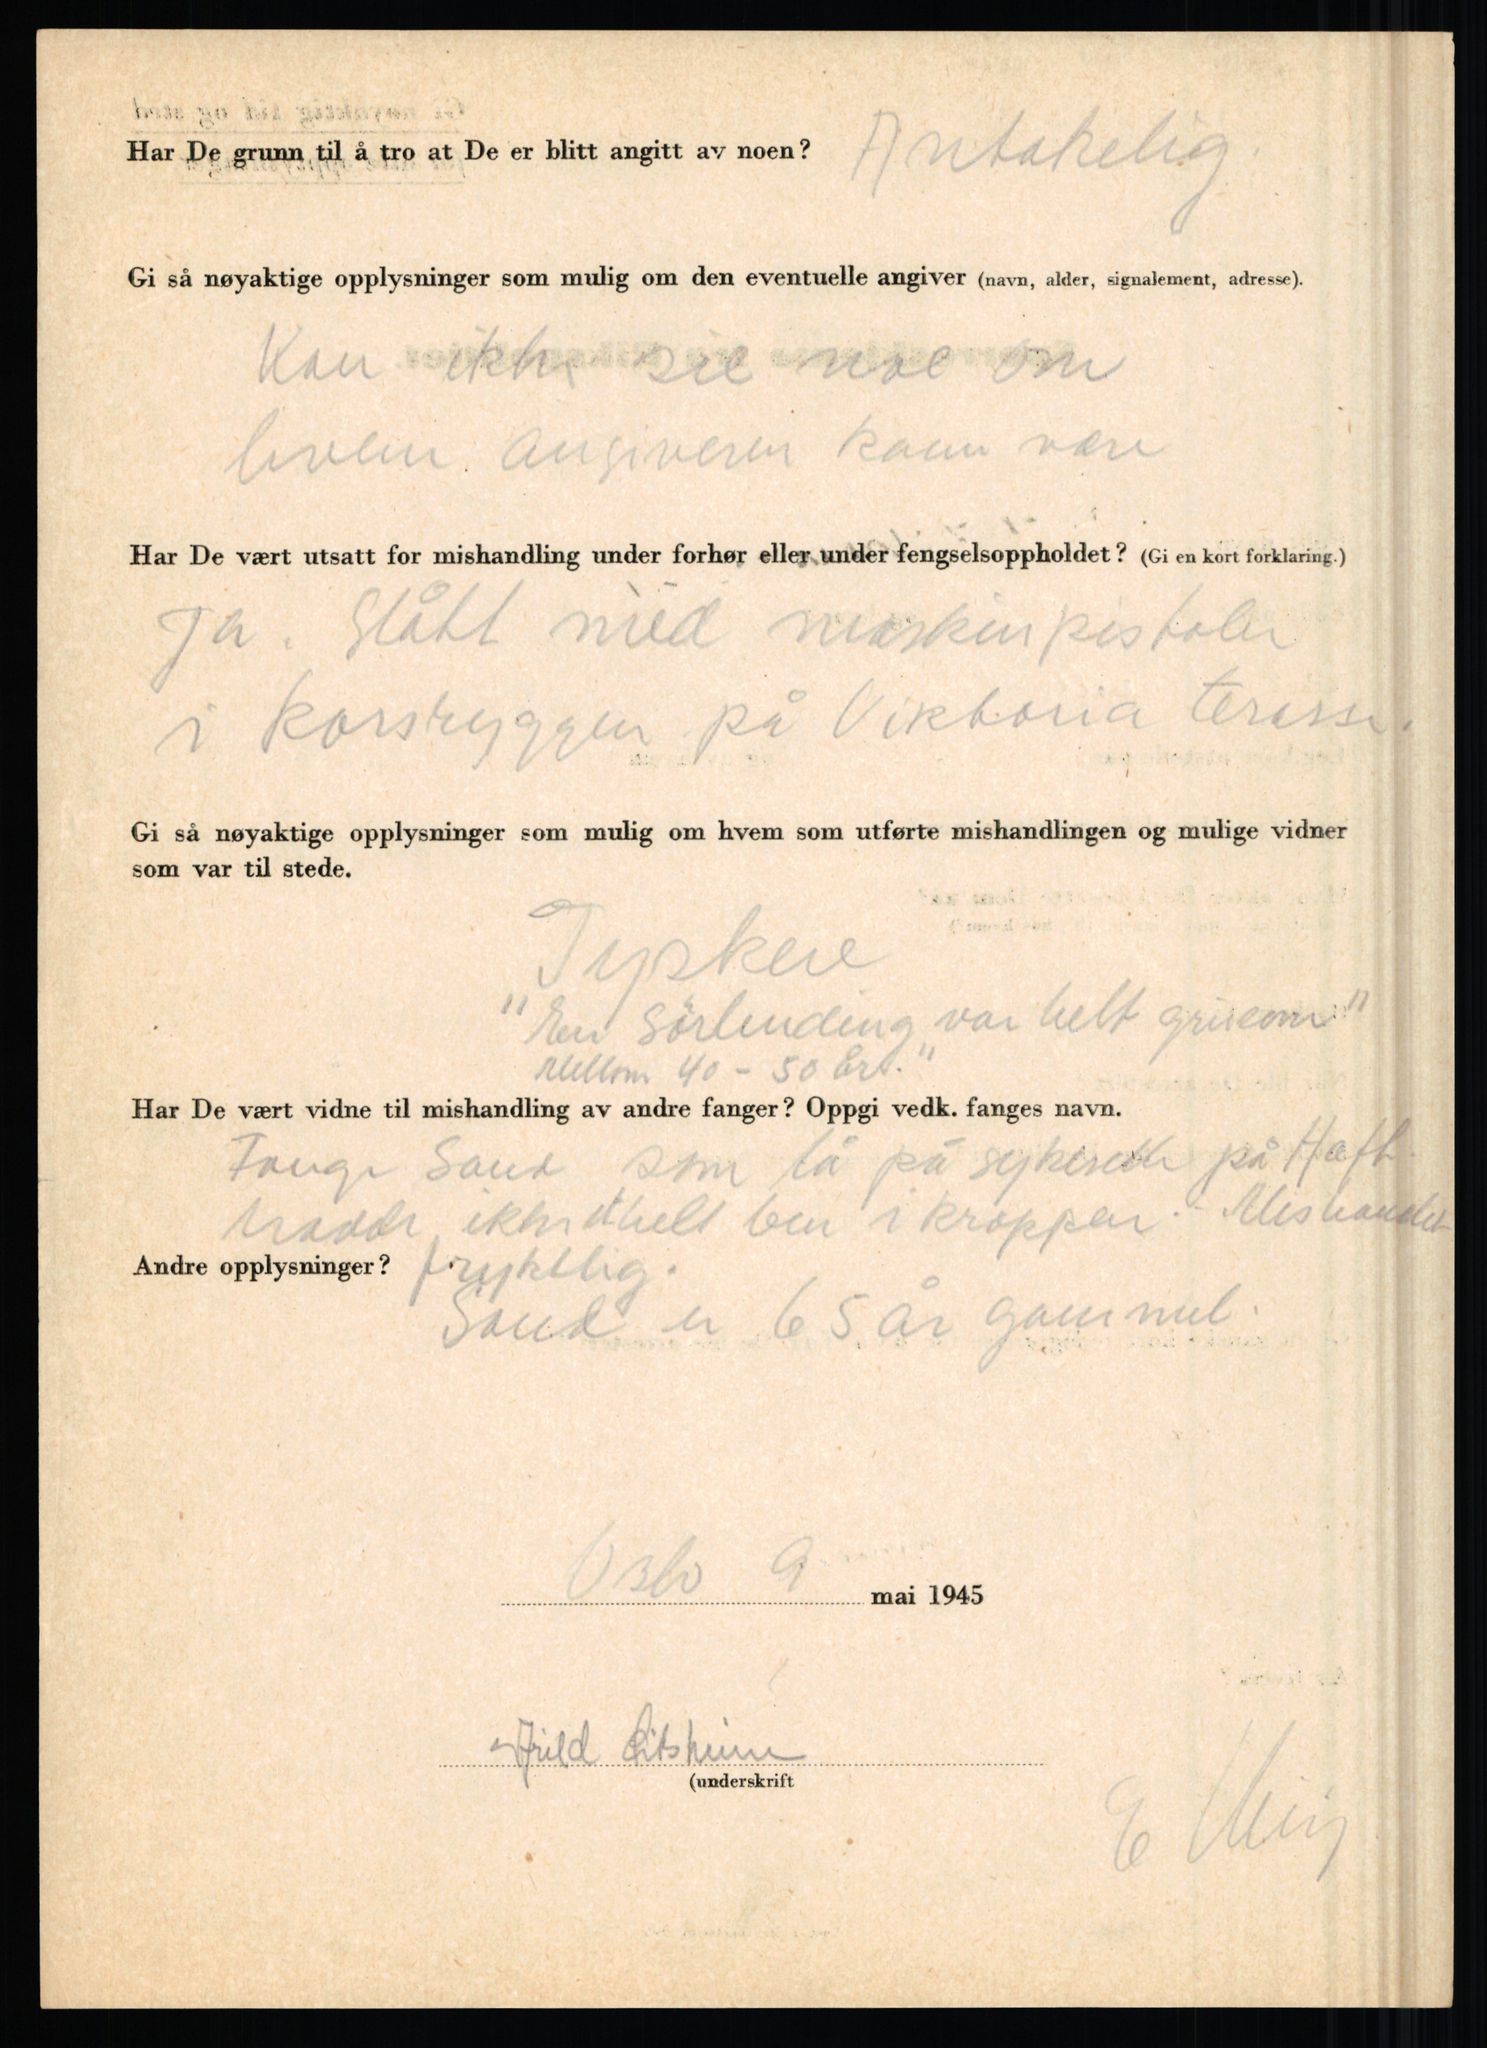 Har De grunn til å tro at De er blitt angitt av noen? Antakelig.
Gi så nøyaktige opplysninger som mulig om den eventuelle angiver (navn, alder, signalement, adresse).
Kan ikke sie noe om
hvem angiveren kann være
Har De vært utsatt for mishandling under forhør eller under fengselsoppholdet? (Gi en kort forklaring.)
Ja. Slått med maskinpistoler
i korsryggen på Viktoria terasse.
Gi så nøyaktige opplysninger som mulig om hvem som utførte mishandlingen og mulige vidner
som var til stede.
Tyskere
"En Sörlending var helt grusom"
Mellom 40 - 50 år."
Har De vært vidne til mishandling av andre fanger? Oppgi vedk. fanges navn.
Fange Sand som lå på sykesedh på Haft.
hadde ikke et helt ben i kroppen. - Mishandlet
Andre opplysninger? fryktelig.
Sand er 65 år gammel.
Oslo 9 mai 1945
Arild
(underskrift
E